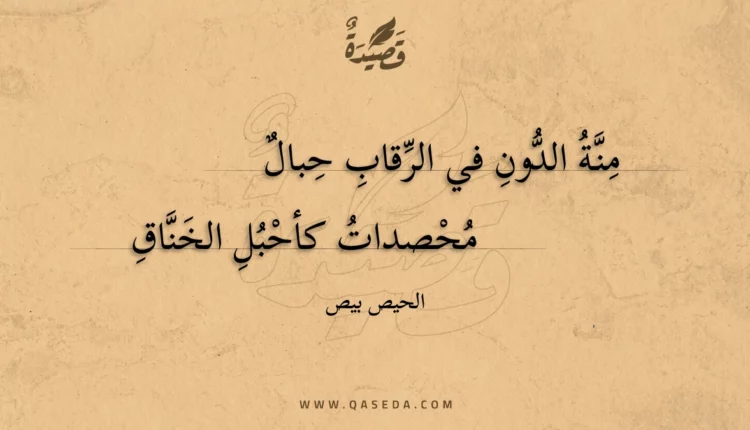 قَصِيْدَةٌ
مِنَّةُ الدُّونِ في الرِّقابِ حِبالٌ
مُحْصداتُ كأحْبُلِ الخَنَّاقِ
الحيص بيص
WWW.QASEDA.COM